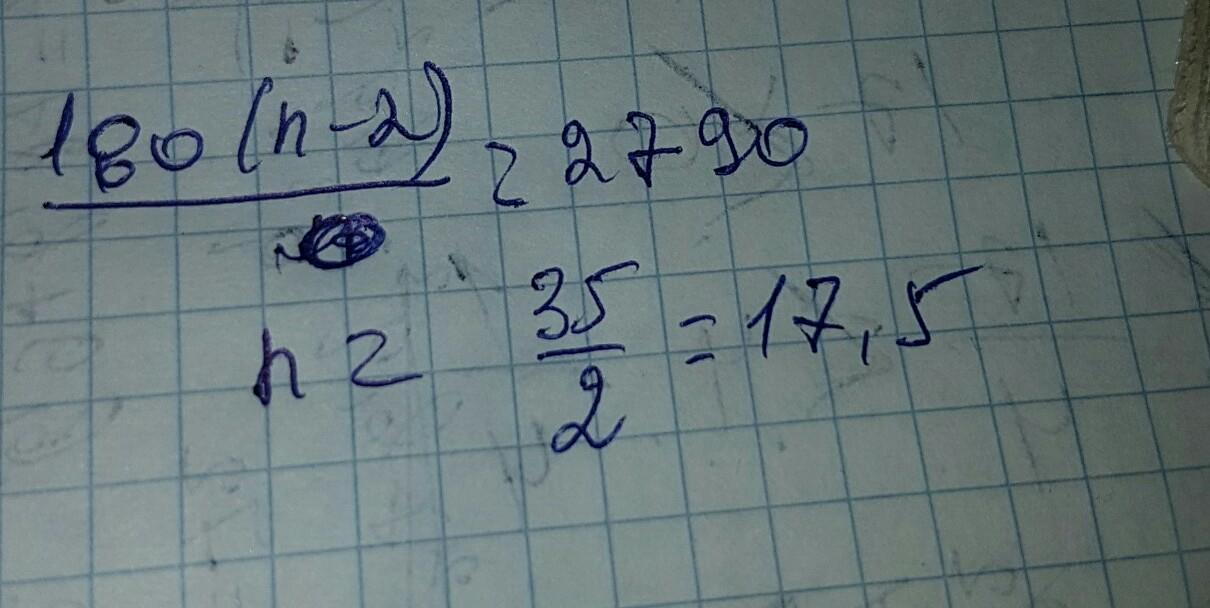 180(n-2) = 2790
n = 35/2 = 17,5